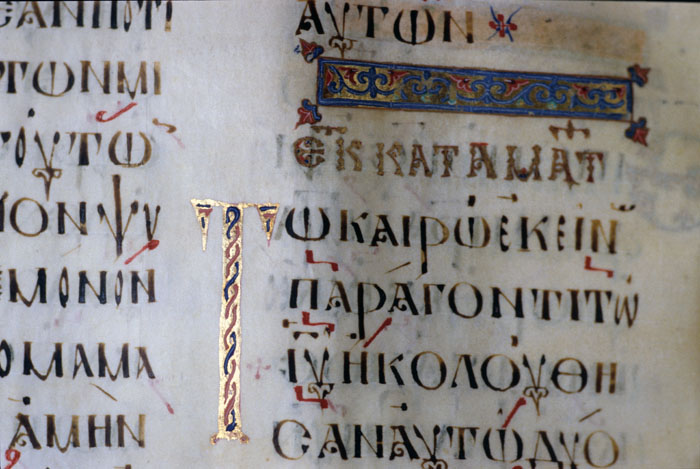 ΕΑΝΠΟΤΙ
ΤΩΝΜΙ
ΤΟΥΤΩ̅
ΙΟΝΨΥ
ΕΜΟΝΟΝ
ΟΜΑΜΑ
ΑΜΗΝ
ΑΥΤΩΝ
ΕΚ ΚΑΤΑ ΜΑΤ
ΤΩΚΑΙΡΩΕΚΕΙΝ
ΠΑΡΑΓΟΝΤΙΤΩ
ΙΥΗΚΟΛΟΥΘΗ
ϹΑΝΑΥΤΩΔΥΟ